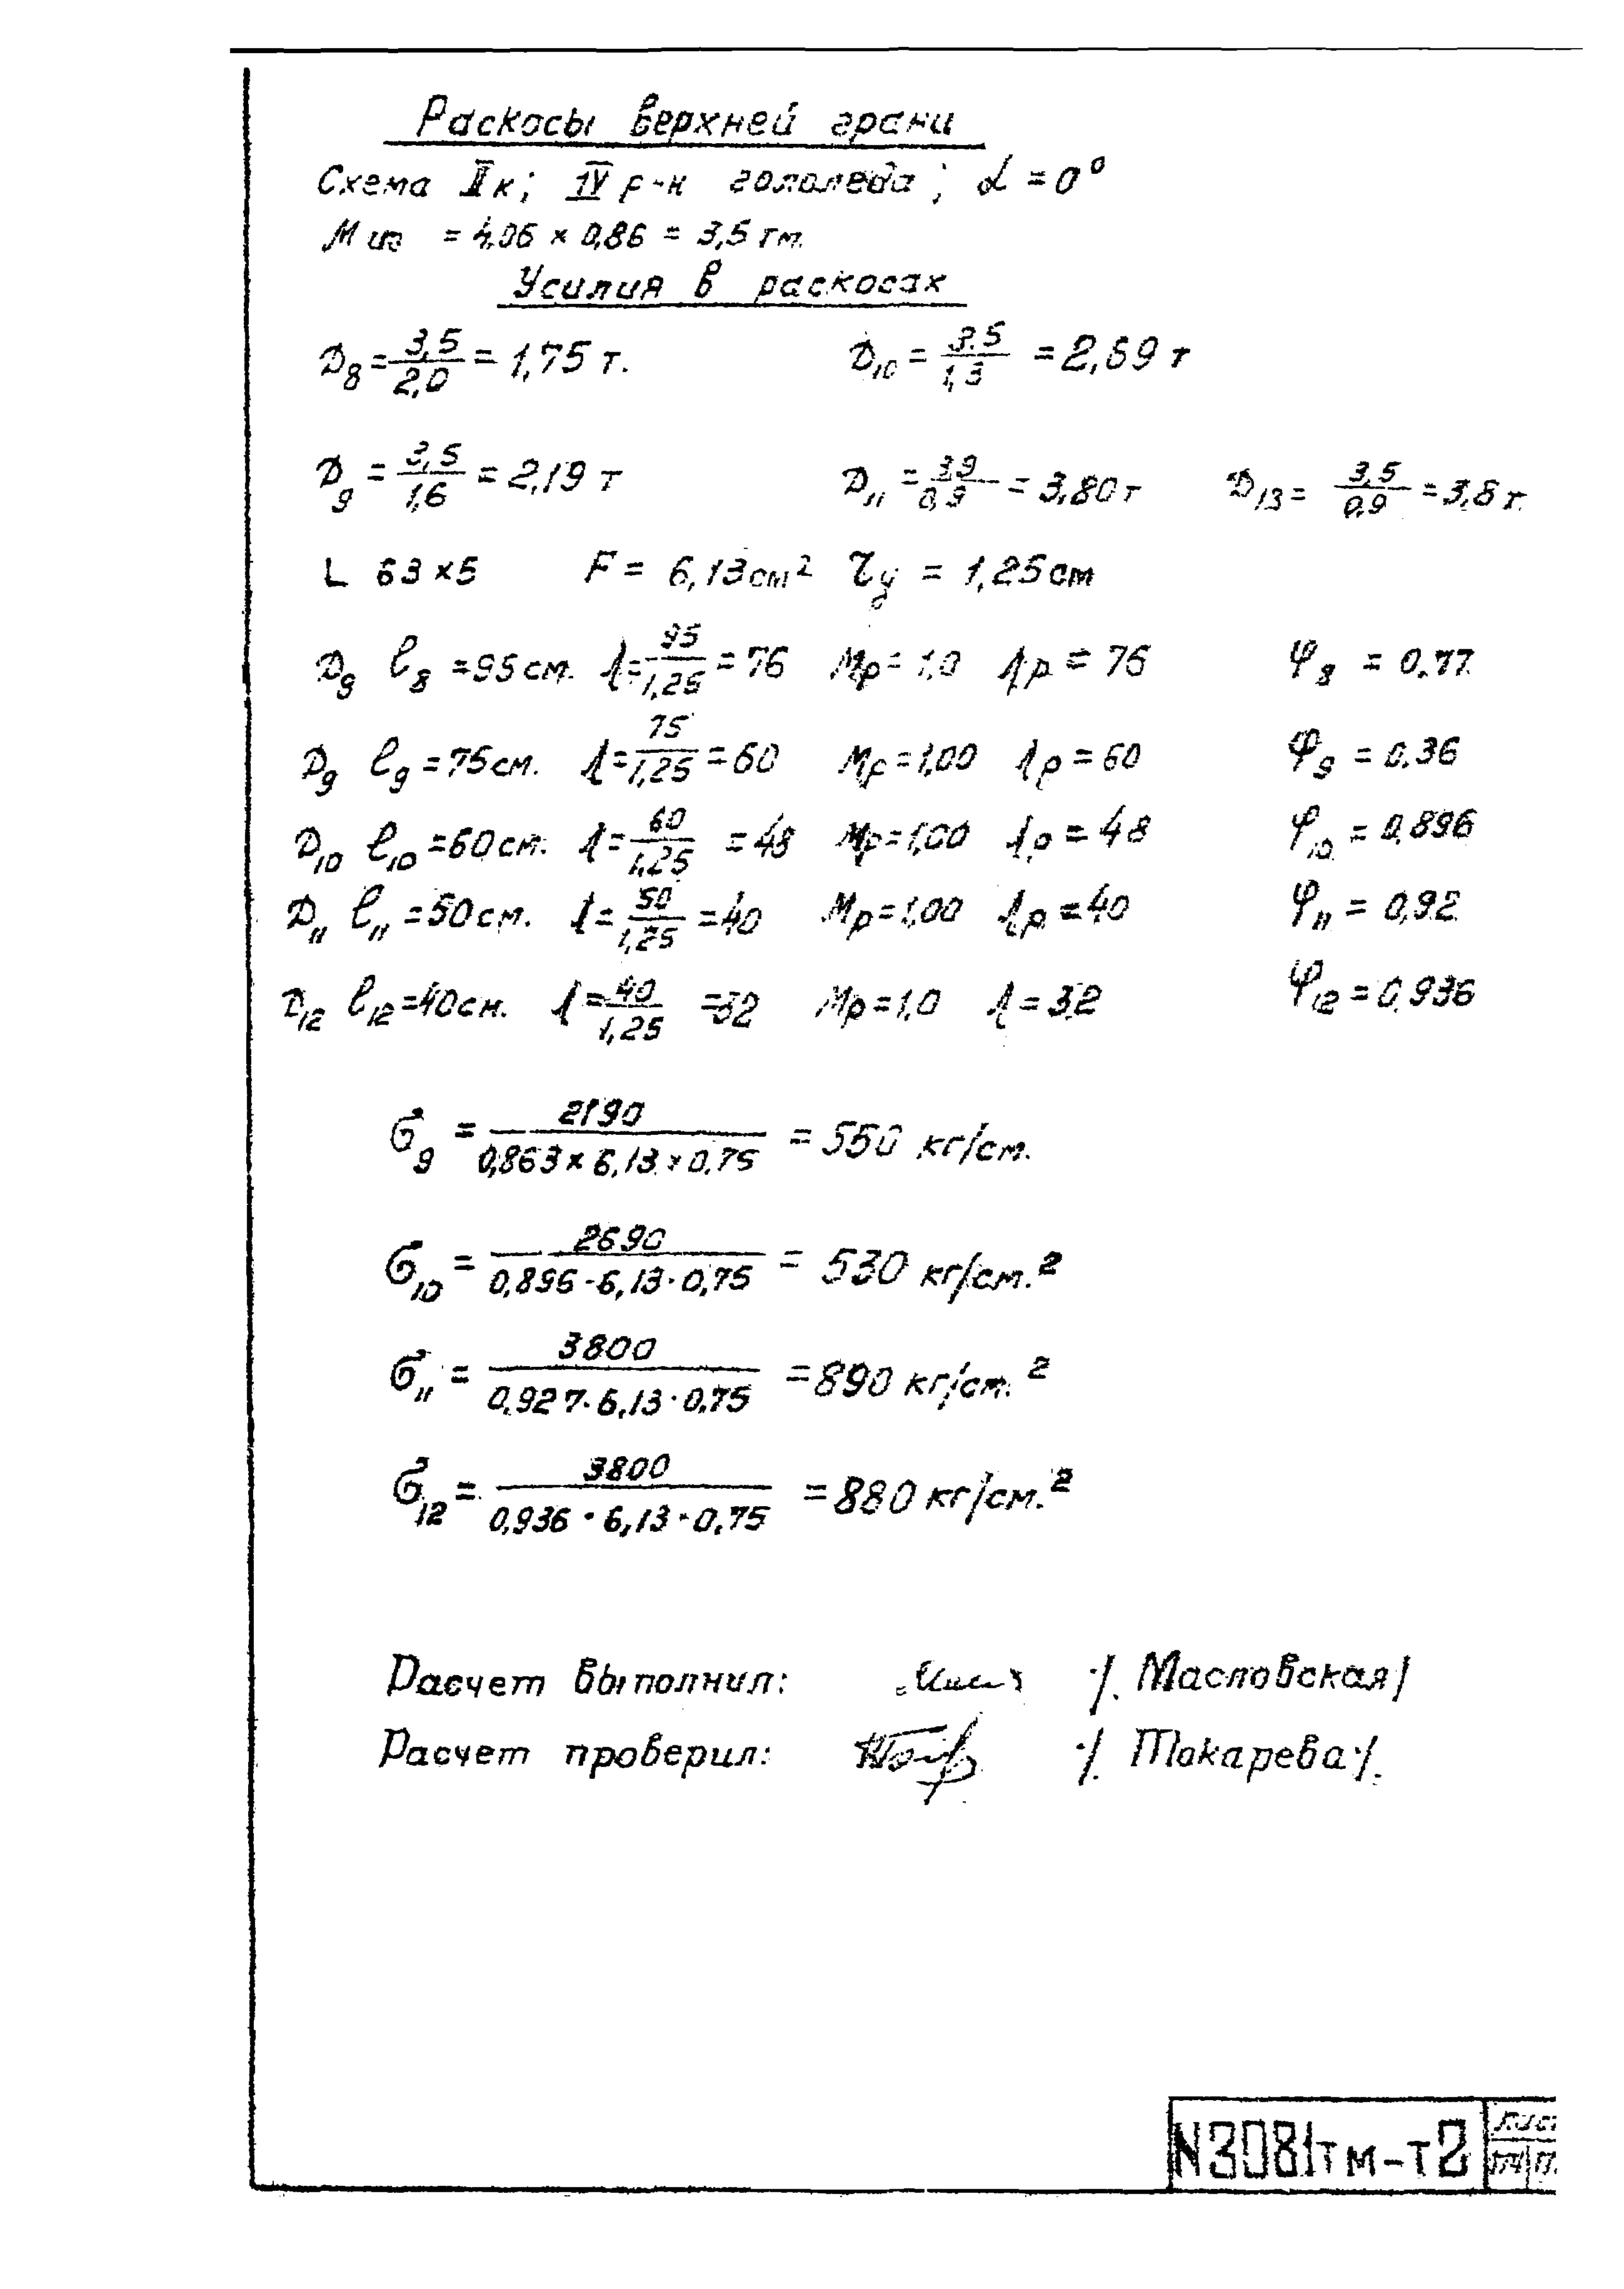 Раскосы верхней грани
Схема IIк; IV р-н гололеда; α = 0°
Mиз = 4,06 × 0,86 = 3,5 тм.
Усилия в раскосах
D8 = 3,5/2,0 = 1,75 т. D10 = 3.5/1,3 = 2,69 т
D9 = 3,5/1,6 = 2,19 т D11 = 3,9/0,9 = 3,80 т D13 = 3,5/0,9 = 3,8 т.
L 63×5 F = 6,13 см² τy = 1,25 см
D9 l8 = 95 см. λ = 95/1,25 = 76 Mp = 1,0 λp = 76 φ8 = 0.77
D9 l9 = 75 см. λ = 75/1,25 = 60 Mp = 1,00 λp = 60 φ9 = 0.36
D10 l10 = 60 см. λ = 60/1,25 = 48 Mp = 1,00 λp = 48 φ10 = 0,896
D11 l11 = 50 см. λ = 50/1,25 = 40 Mp = 1,00 λp = 40 φ11 = 0,92
D12 l12 = 40 см. λ = 40/1,25 = 32 Mp = 1,0 λ = 32 φ12 = 0,936
σ9 = 2190/0,863 × 6,13 × 0.75 = 550 кг/см.
σ10 = 2690/0,896 · 6,13 · 0,75 = 530 кг/см.²
σ11 = 3800/0,927 · 6,13 · 0,75 = 890 кг/см.²
σ12 = 3800/0,936 · 6,13 · 0,75 = 880 кг/см.²
Расчет выполнил: /. Масловская/
Расчет проверил: /. Токарева /.
N3081тм-т2 Лист